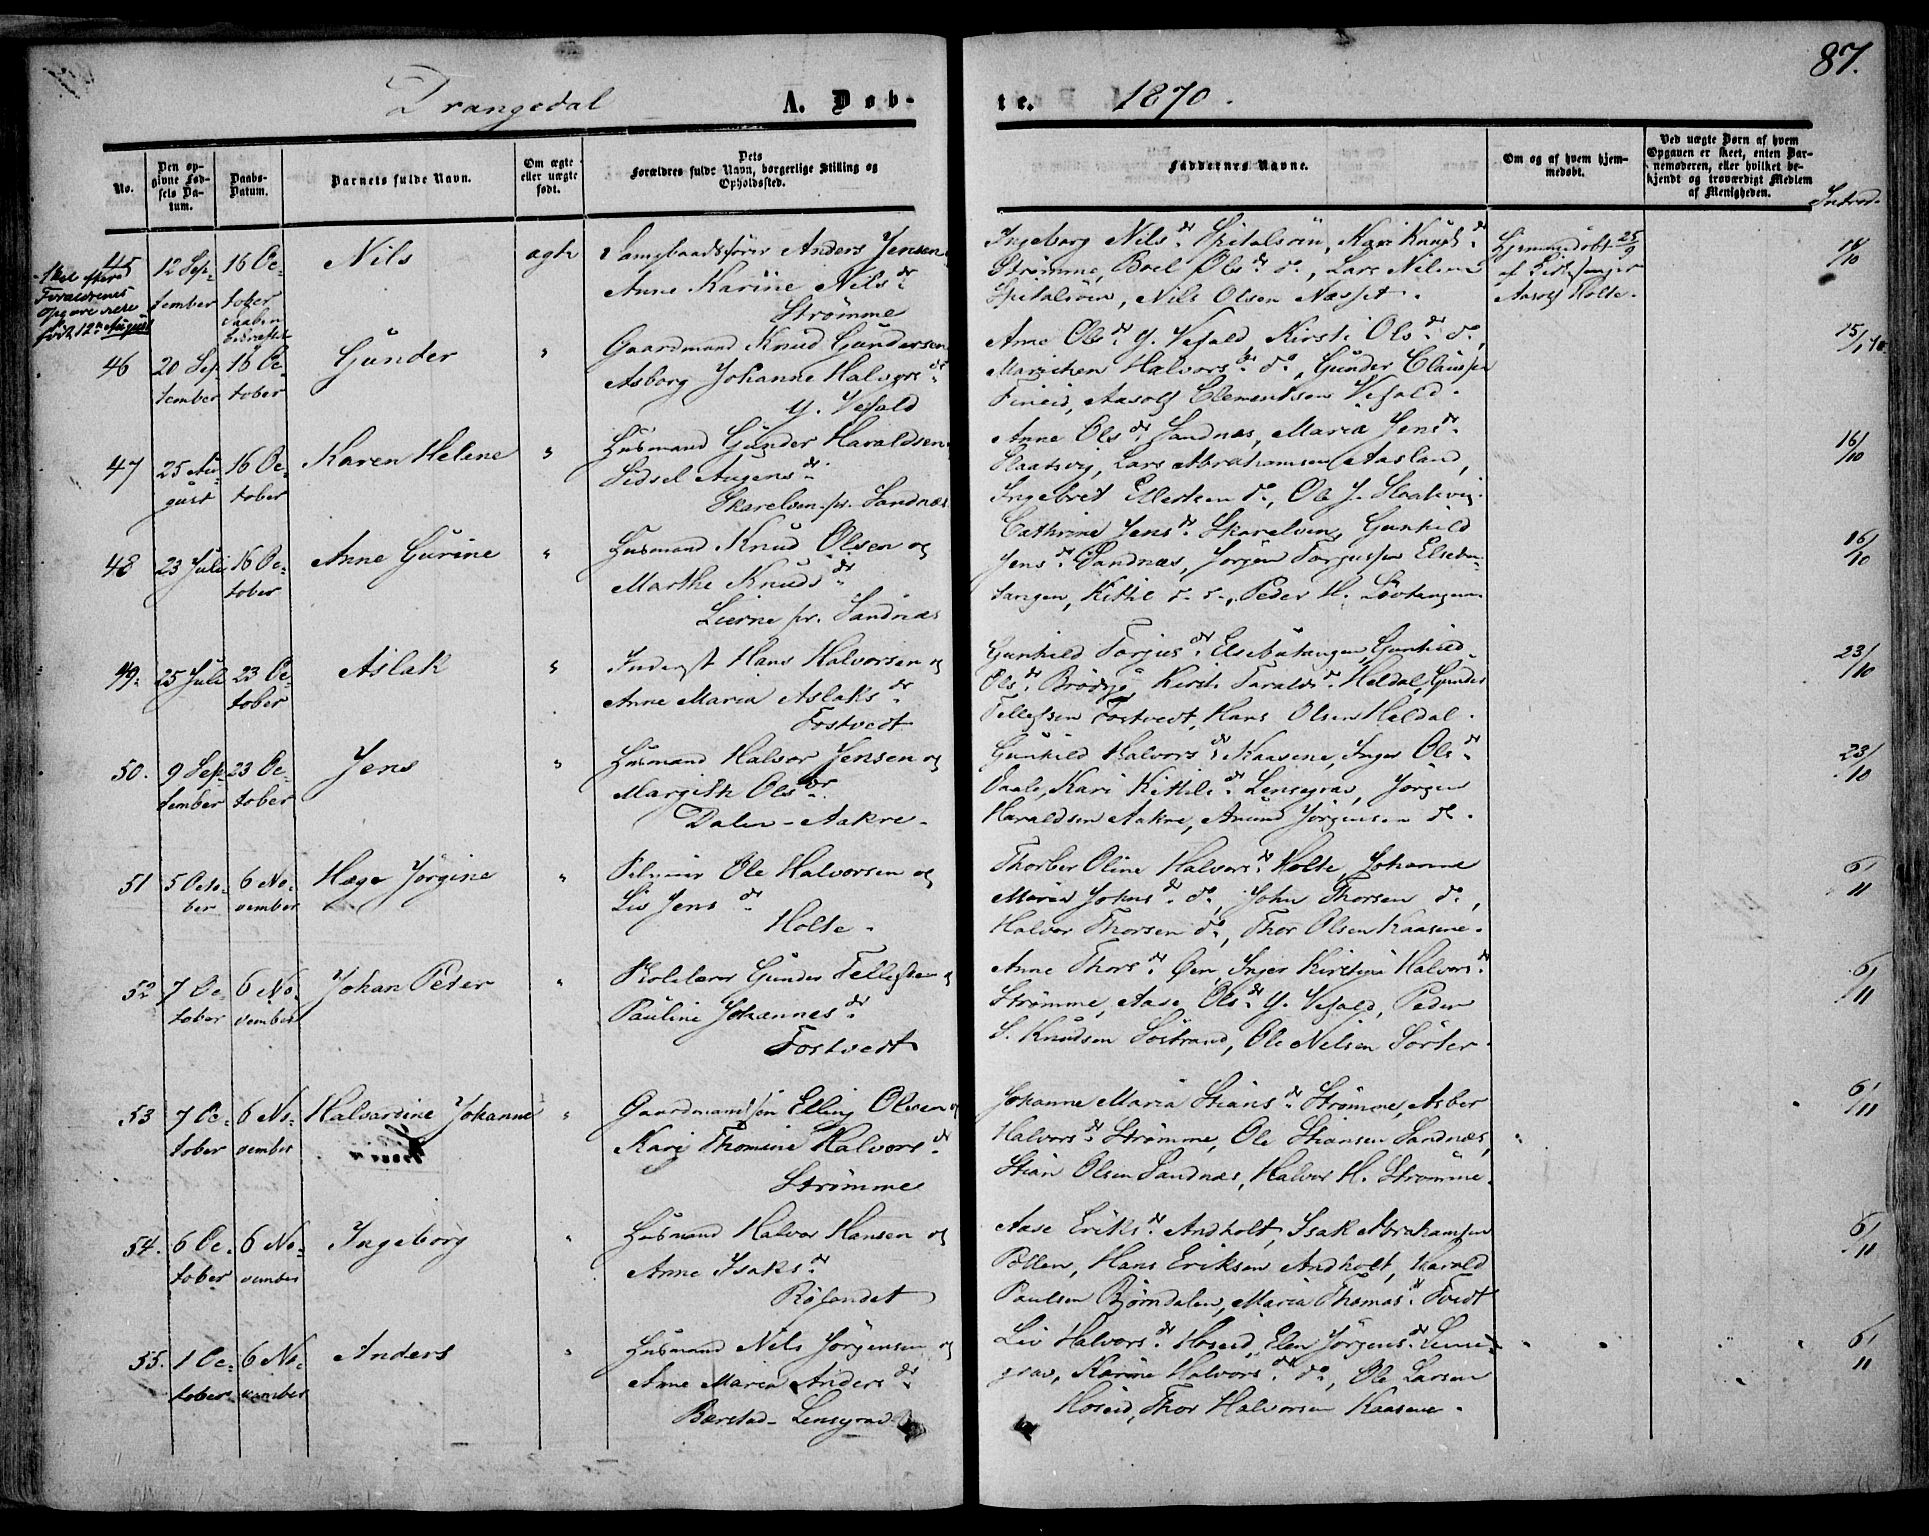 Drangedal A. Døb-
te. 1870. 87.
No.
Den op-
givne Fød-
sels Da-
tum.
Daabs-
Datum.
Barnets fulde Navn.
Om ægte
eller uægte
født.
Dets
Forældres fulde Navn, borgerlige Stilling og
Opholdssted.
Faddernes Navne.
Om og af hvem hjem-
medøbt.
Ved uægte Børn af hvem
Opgaven er skeet, enten Bar-
nemoderen, eller hvilket be-
kjendt og troværdigt Medlem
af Menigheden.
Introd.
45 12 Sep-
tember 16 Oc-
tober
Daaben
Nils ægte
Skal efter
Forældrenes
Opgave være
født 12te August
Anders Jensen
Anne Karine Nilsdr.
Strømme
Ingeborg Nilsdr. Spitalsöen, Kari Knudsdr.
Strømme, Boel Olsdr. do, Lars Nilsen
Spitalsöen, Nils Olsen Næsset.
Hjemmedøbt 25/9
af Kirkesanger
Aasolf Holte.
16/10
46 20 Sep-
tember 16 Oc-
tober
Gunder "
Gaardmand Knud Gundersen
Asborg Johanne Halvorsdr.
Y. Vefald
Anne Olsdr. Y. Vefald, Kirsti Olsdr. do,
Marichen Halvorsdr. do, Gunder Claussen
Fineid, Aasolf Clementsen Vefald.
47 25 Au-
gust 16 Oc-
tober
Karen Helene "
Husmand Gunder Haraldsen
Sidsel Augensdr.
Skarelven pr. Sandnæs
Anne Olsdr. Sandnæs, Maria Jensdr.
Slaatvig, Lars Abrahamsen Aasland,
Ingebret Ellertsen do, Ole J. Slaatvig.
16/10
48 23 Juli 16 Oc-
tober
Anne Gurine "
Husmand Knud Olsen og
Marthe Knudsdr.
Lierne pr. Sandnæs
Cathrine Jensdr. Skarelven, Gunhild
Jensdr. Sandnæs, Jørgen Torgussen Elsebu-
tangen, Kittil do do, Peder H. Løvtangen
16/10
49. 25 Juli 23 Oc-
tober
Aslak "
Inderst Hans Halvorsen og
Anne Maria Aslaksdr.
Fostvedt
Gunhild Torjusdr. Elsebutangen, Gunhild
Olsdr. Brødsjø, Kirsti Taraldsdr. Heldal, Gunder
Tellefsen Fostvedt, Hans Olsen Heldal.
23/10
50. 9 Sep-
tember 23 Oc-
tober
Jens "
Husmand Halvor Jensen og
Margith Olsdr.
Dalen - Aakre -
Gunhild Halvorsdr. Kaasene, Inger Olsdr.
Daale, Kari Kittilsdr. Lensegrav, Jörgen
Haraldsen Aakre, Amund Jørgensen do.
23/10
51 5 Octo-
ber 6 No-
vember
Hæge Jørgine "
Selveier Ole Halvorsen og
Liv Jensdr.
Holte.
Thorber Oline Halvorsdr. Holte, Johanne
Maria Johnsdr. do, John Thorsen do,
Halvor Thorsen do, Thor Olsen Kaasene.
6/11
52 7 Oc-
tober 6 No-
vember
Johan Peder "
Gunder Tellefsen og
Pauline Johannesdr.
Fostvedt
Anne Thorsdr. Øen, Inger Kirstine Halvorsdr.
Strømme, Aase Olsdr. Y. Vefald, Peder
S. Knudsen Söstrand, Ole Nilsen Sörter.
6/11
53 7 Oc-
tober 6 No-
vember
Halvardine Johanne "
Gaardmandssøn Elling Olsen og
Kari Thomine Halvorsdr.
Strømme
Johanne Maria Stiansdr. Strømme, Asber
Halvorsdr. Strømme, Ole Stiansen Sandnæs,
Stian Olsen Sandnæs, Halvor H. Strømme.
6/11
54. 6 Oc-
tober 6 No-
vember
Ingeborg "
Husmand Halvor Hansen og
Anne Isaksdr.
Røsandet
Aase Eriksdr. Andholt, Isak Abrahamsen
Pollen, Hans Eriksen Andholt, Harald
Paulsen Bjørndalen, Maria Thomasdr. Tvedt
6/11
55. 1 Oc-
tober 6 No-
vember
Anders "
Husmand Nils Jörgensen og
Anne Maria Andersdr.
Barstad - Lensegrav
Liv Halvorsdr. Hoseid, Elen Jörgensdr. Lense-
grav, Karine Halvorsdr. do, Ole Larsen
Hoseid, Thor Halvorsen Kaasene.
6/11